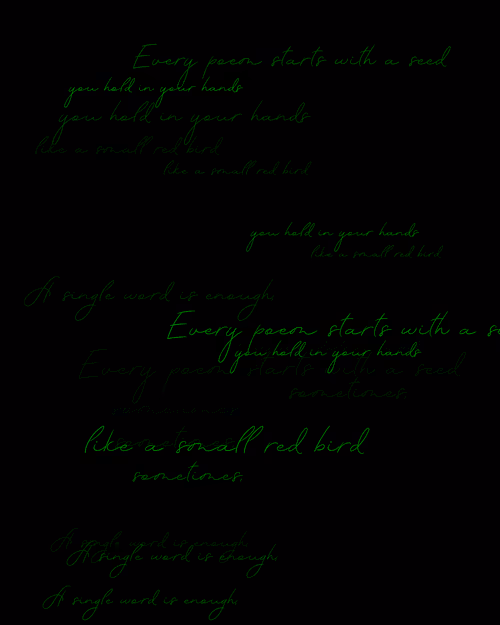 Every poem starts with a seed
you hold in your hands
you hold in your hands
like a small red bird
like a small red bird.
you hold in your hands
like a small red bird
A single word is enough,
Every poem starts with a
you hold in your hands
Every poem starts with a seed
sometimes.
like a small red bird
sometimes,
A single word is enough
A single word is enough,
A single word is enough,